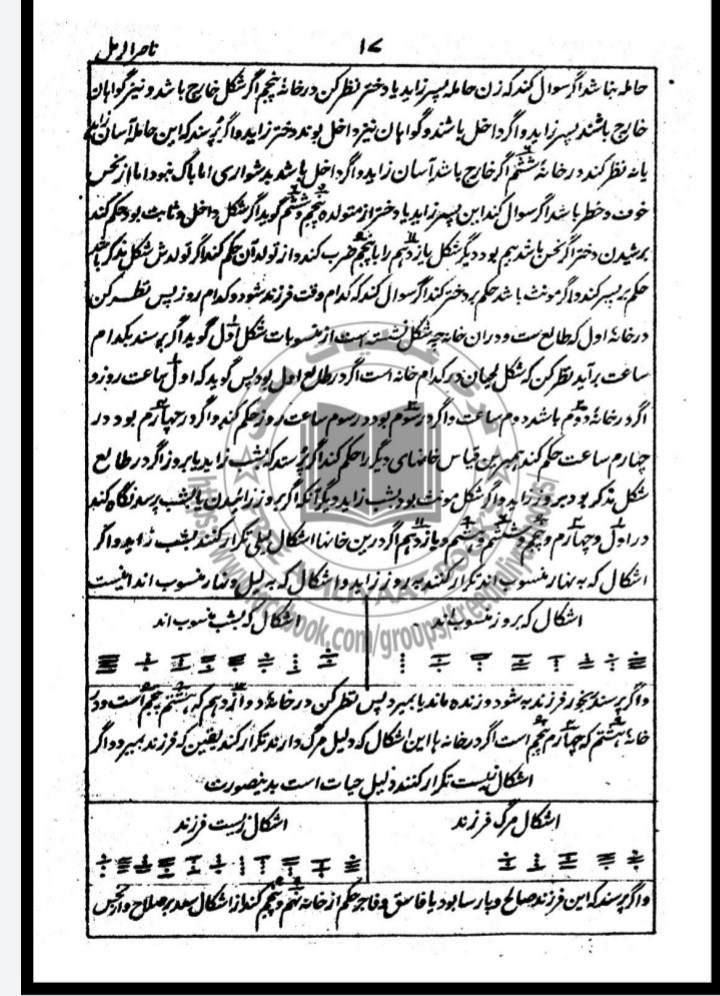 ناصر الرمل
۱۷
حاملہ بناشد اگر سوال کند کہ زن حاملہ پسر زاید یا دختر نظر کن درخانۂ پنجم اگر شکل خارج باشد ونیز گواہان
خارج باشند پسر زاید واگر داخل باشند وگواہان نیز داخل بوند دختر زاید واگر پرسند کہ این حاملہ آسان زاید
یا نہ نظر کند درخانۂ ششم اگر خارج باشد آسان زاید واگر داخل باشد بدشواری اما باک نبود اما از نحس
خوف وخطر باشد اگر سوال کند این پسر زاید یا دختر از متولدہ پنجم وششم گوید اگر شکل داخل وثابت بود حکم کند
دختر اگر نحس باشد ہم بود دیگر شکل یازدہم را با پنجم ضرب کند واز تولد آن حکم کند اگر تولدش شکل مذکر باشد
حکم بر پسر کند واگر مونث باشد حکم بر دختر کند اگر سوال کند کہ کدام وقت فرزند شود وکدام روز پس نظر کن
درخانۂ اول کہ طالع ست ودران خانہ چہ شکل نشستہ است از منسوبات شکل اول گوید اگر پرسند بکدام
ساعت برآید نظر کن کہ شکل لحیان در کدام خانہ است اگر در طالع اول بود پس گوید کہ اول ساعت روز و
اگر درخانۂ دوم باشد دوم ساعت واگر در سوم بود در سوم ساعت روز حکم کند واگر در چہارم بود در
چہارم ساعت حکم کند ہمبرین قیاس خانہای دیگر را حکم کند اگر پرسند کہ بشب زاید یا بروز اگر در طالع
شکل مذکر بود بروز زاید واگر شکل مونث بود بشب زاید دیگر آنکہ اگر بروز زائیدن یا بشب پرسد نگاہ کند
در اول وچہارم وپنجم وششم وہشتم ویازدہم اگر درین خانہا اشکال لیلی تکرار کنند بشب زاید واگر
اشکال کہ بہ نہار منسوب اند تکرار کنند بہ روز زاید واشکال کہ بہ لیل ونہار منسوب اند اینست
اشکال کہ بروز منسوب اند
اشکال کہ بشب منسوب اند
واگر پرسند رنجور فرزند بہ شود وزندہ ماند یا بمیرد پس نظر کن درخانۂ دوازدہم کہ ہشتم پنجم است ودر
خانۂ ہشتم کہ چہارم پنجم است اگر درخانہ با این اشکال کہ دلیل مرگ دارند تکرار کند یقین کہ فرزند بمیرد واگر
اشکال زیست تکرار کنند دلیل حیات است بدینصورت
اشکال مرگ فرزند
اشکال زیست فرزند
واگر پرسند کہ این فرزند صالح وپارسا بود یا فاسق وفاجر حکم از خانۂ نہم وپنجم کند از اشکال سعد بر صلاح واز نحس
FREE AMLIYAAT BOOKS
https://www.facebook.com/groups/freeamliyaatbooks/